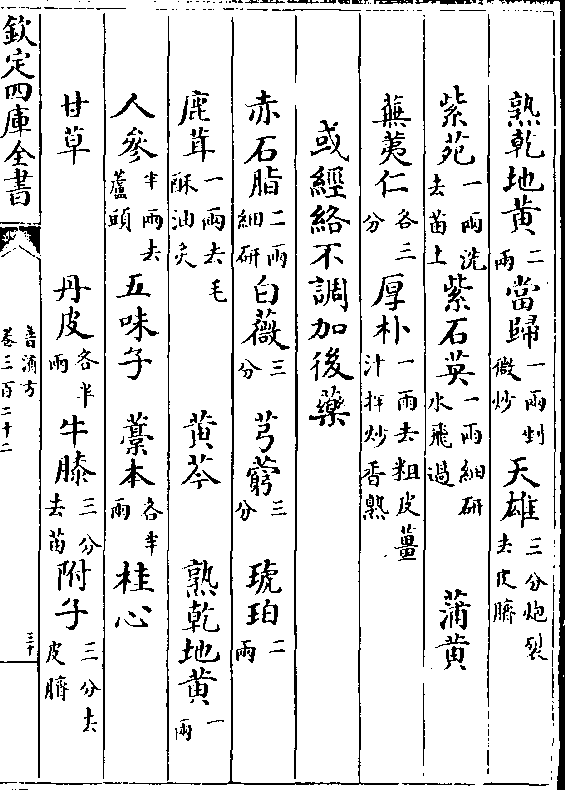 熟乾地黃二兩 當歸一兩剉微炒 天雄三分炮裂去皮臍
紫苑一兩洗去苗土 紫石英一兩細研水飛過 蒲黃
蕪荑仁各三分 厚朴一兩去粗皮薑汁拌炒香熟
或經絡不調加後藥
赤石脂二兩細研 白薇三分 芎藭三分 琥珀二兩
鹿茸一兩去毛酥油炙 黃芩 熟乾地黃一兩
人參半兩去蘆頭 五味子 藁本各半兩 桂心
甘草 丹皮各半兩 牛膝三分去苗 附子三分去皮臍
欽定四庫全書
普濟方
卷三百二十二
三十